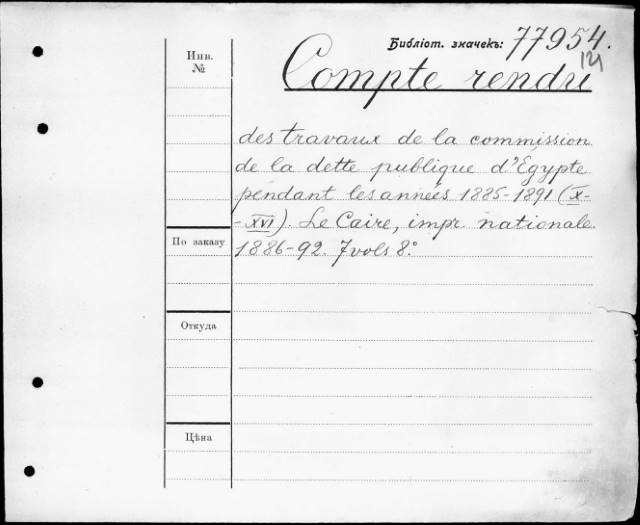 Библіот. значекъ: 77954.
121
Инв.
№
Compte rendu
des travaux de la commission
de la dette publique d'Egypte
pendant les années 1885-1891 (X-
-XVI). Le Caire, impr. nationale.
По заказу
1886-92. 7 vols 8°
Откуда
Цѣна